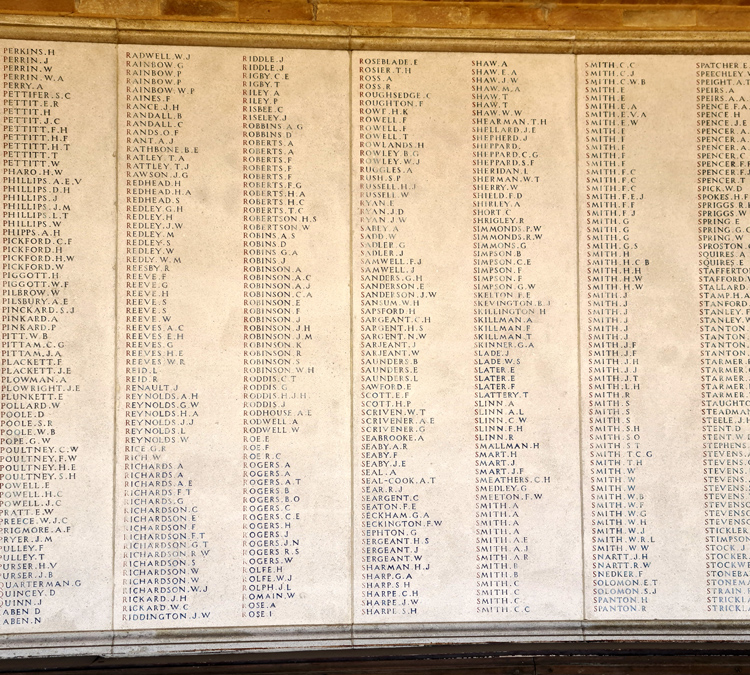 PERKINS.H
PERRIN.J
PERRIN.W
PERRIN.W.A
PERRY.A
PETTIFER.S.C
PETTIT.E.R
PETTIT.H
PETTIT.J.C
PETTIT.F.H
PETTITT.H.F
PETTITT.H.T
PETTITT.T
PETTITT.W
PHARO.H.W
PHILLIPS.A.E.V
PHILLIPS.D.H
PHILLIPS.J
PHILLIPS.J.M
PHILLIPS.L.T
PHILLIPS.W
PHIPPS.A.H
PICKFORD.C.F
PICKFORD.H
PICKFORD.H.W
PICKFORD.W
PIGGOTT.H
PIGGOTT.W.F
PILBROW.W
PILSBURY.A.E
PINCKARD.S.J
PINKARD.A
PINKARD.P
PITT.W.B
PITTAM.C.G
PITTAM.J.A
PLACKETT.E
PLACKETT.J.E
PLOWMAN.A
PLOWRIGHT.J.E
PLUNKETT.E
POLLARD.W
POOLE.D
POOLE.S.R
POOLE.W.B
POPE.G.W
POULTNEY.C.W
POULTNEY.F.W
POULTNEY.H.E
POULTNEY.S.H
POWELL.E
POWELL.H.C
POWELL.J.C
PRATT.E.W
PREECE.W.J.C
PRIGMORE.A.F
PRYER.J.M
PULLEY.F
PULLEY.T
PURSER.H.V
PURSER.J.B
QUARTERMAN.G
QUINCEY.D
QUINN.J
RABEN D
RABEN.N
RADWELL.W.J
RAINBOW.G
RAINBOW.P
RAINBOW.P
RAINBOW.W.P
RAINES.F
RANCE.J.H
RANDALL.B
RANDALL.C
RANDS.O.F
RANT.A.J
RATHBONE.B.E
RATLEY.T.A
RATTLEY.T.J
RAWSON.J.G
REDHEAD.H
REDHEAD.H.A
REDHEAD.S
REDLEY G.H
REDLEY.H
REDLEY.J.W
REDLEY.M
REDLEY.S
REDLEY.W
REDLY.W.M
REESBY.R
REEVE.F
REEVE.G
REEVE.H
REEVE.S
REEVE.S
REEVE.W
REEVES.A.C
REEVES E.H
REEVES.G
REEVES.H.E
REEVES.W.R
REID.L
REID.R
RENAULT.J
REYNOLDS.A.H
REYNOLDS.G.W
REYNOLDS.H.A
REYNOLDS.J.J
REYNOLDS.L
REYNOLDS.W
RICE G.R
RICH W
RICHARDS.A
RICHARDS.A
RICHARDS.A.E
RICHARDS.F.T
RICHARDS.G
RICHARDSON.C
RICHARDSON E
RICHARDSON F
RICHARDSON.F.T
RICHARDSON.G.T
RICHARDSON.R.W
RICHARDSON.S
RICHARDSON.W
RICHARDSON.W
RICKARD.J.H
RICKARD.W.C
RIDDINGTON.J.W
RIDDLE.J
RIDDLE.J
RIGBY.C.E
RIGBY.T
RILEY.A
RILEY.P
RISBEE.C
RISELEY.J
ROBBINS A.G
ROBBINS D
ROBERTS.A
ROBERTS.A
ROBERTS.F
ROBERTS.F
ROBERTS.F.G
ROBERTS.H.A
ROBERTS.H.C
ROBERTS.T.C
ROBERTSON.H.S
ROBERTSON W
ROBINS A.S
ROBINS.D
ROBINS G.A
ROBINS J
ROBINSON.A
ROBINSON.A.C
ROBINSON.A.J
ROBINSON.C.A
ROBINSON E
ROBINSON F
ROBINSON.J
ROBINSON.J.H
ROBINSON.J.M
ROBINSON K
ROBINSON.R
ROBINSON S
ROBINSON.W.H
RODDIS.C.T
RODDIS.G
RODDIS.H.J.H
RODDIS J
RODHOUSE A.E
RODWELL.A
RODWELL W
ROE.E
ROE.F
ROE R.C
ROGERS.A
ROGERS.A
ROGERS.A.T
ROGERS.B
ROGERS.B.O
ROGERS.C
ROGERS.E
ROGERS.H
ROGERS.J
ROGERS.J.N
ROGERS R.S
ROGERS.W
ROLFE.H
ROLFE.W.J
ROLPH.J.L
ROMAIN.W.G
ROSE.A
ROSE.I
ROSEBLADE.E
ROSIER.T.H
ROSS.A
ROSS.R
ROUGHSEDGE.C
ROUGHTON.F
ROWE.H.K
ROWELL.F
ROWELL.F
ROWELL.T
ROWLANDS.H
ROWLEY B.G
ROWLEY.W.J
RUGGLES.A
RUSH.S.P
RUSSELL.H.J
RUSSELL.W
RYAN.E
RYAN.J.D
RYAN.J.W
SABEY.A
SADD.W
SADLER.G
SADLER.J
SAMWELL.F.J
SAMWELL.J
SANDERS.G.H
SANDERSON.E
SANDERSON.J.W
SANSUM.W.H
SAPSFORD.H
SARGEANT.C.H
SARGENT.H.S
SARGENT.N.W
SARJEANT.J
SARJEANT.W
SAUNDERS.B
SAUNDERS.E
SAUNDERS.L
SAWFORD.E
SCOTT.E.F
SCOTT.H.P
SCRIVEN.W.T
SCRIVENER.A.E
SCRIVENER.G
SEABROOKE.A
SEABY.A.R
SEABY.F
SEABY.J.E
SEAL.A
SEAL-COOK.A.T
SEAR.R.J
SEARGENT.C
SEATON.F.E
SECKHAM.G.A
SECKINGTON.F.W
SEPHTON.G
SERGEANT.H.S
SERGEANT.J
SERGEANT.W
SHARMAN.H.J
SHARP.G.A
SHARP.S.H
SHARPE.C.H
SHARPE.J.W
SHARPE S.H
SHAW.A
SHAW.E.A
SHAW.J.W
SHAW.M.A
SHAW.T
SHAW.T
SHAW.W.W
SHEARMAN.T.H
SHELLARD.J.E
SHEPHERD.J
SHEPPARD.
SHEPPARD.C.G
SHEPPARD.S.F
SHERIDAN.L
SHERMAN.W.T
SHERRY.W
SHIELD.F.D
SHIRLEY.A
SHORT.C
SHRIGLEY.R
SIMMONDS.P.W
SIMMONDS.R.W
SIMMONS.G
SIMPSON.B
SIMPSON.C.E
SIMPSON.F
SIMPSON.F
SIMPSON.G.W
SKELTON.F.E
SKEVINGTON.B.J
SKILLINGTON H
SKILLMAN.A
SKILLMAN.F
SKILLMAN.T
SKINNER.G.A
SLADE.J
SLADE.W.S
SLATER.E
SLATER.E
SLATER.F
SLATTERY.T
SLINN.A
SLINN.A.L
SLINN.C.W
SLINN.F.H
SLINN.R
SMALLMAN.H
SMART.H
SMART.J
SMART.J.F
SMEATHERS.C.H
SMEDLEY.G
SMEETON.F.W
SMITH.A
SMITH.A
SMITH.A
SMITH.A
SMITH.A.E
SMITH.A.J
SMITH.A.R
SMITH.B
SMITH.B
SMITH.C
SMITH.C
SMITH.C.C
SMITH.C.C
SMITH.C.J
SMITH.C.W.B
SMITH.E
SMITH.E
SMITH.E.A
SMITH.E.V.A
SMITH.E.W
SMITH.F
SMITH.F
SMITH.F
SMITH.F
SMITH.F.C
SMITH.F.C
SMITH.F.E.J
SMITH.F.F
SMITH.F.J
SMITH.G
SMITH.G
SMITH.G.S
SMITH.H
SMITH.H.C.B
SMITH.H.H
SMITH.H.W
SMITH.H.W
SMITH.J
SMITH.J
SMITH.J
SMITH.J
SMITH.J
SMITH.J.F
SMITH.J.F
SMITH.J.H
SMITH.J.J
SMITH.J.T
SMITH.L.H
SMITH.R
SMITH.S
SMITH.S
SMITH.S
SMITH.S.H
SMITH.S.O
SMITH.S.T
SMITH.T.C.G
SMITH.T.H
SMITH.W
SMITH.W
SMITH.W
SMITH.W.B
SMITH.W.F
SMITH.W.G
SMITH.W.H
SMITH.W.J
SMITH.W.R.L
SMITH.W.W
SNARTT.J.H
SNARTT.R.W
SNEDKER.F
SOLOMON.E.T
SOLOMON.S.J
SPANTON.H
SPANTON.R
SPATCHER E.
SPEECHLEY
SPEIGHT.A
SPEIRS.A
SPEIRS.A.A
SPENCE F.A
SPENCE H
SPENCE.J.E
SPENCER.A
SPENCER.C
SPENCER.E
SPENCER.F
SPENCER.F.J
SPENCER.T
SPICK.W.D
SPOKES.H.F
SPRIGGS.R
SPRIGGS.W
SPRING E
SPRING.G.C
SPRING W
SPROSTON
SQUIRES.A
SQUIRES.E
STAFFERTO
STAFFORD
STALLARD
STAMP.H.A
STANFORD
STANLEY.F
STANLEY.W
STANTON
STANTON
STANTON
STARMER
STARMER
STARMER
STARMER
STAUGHTO
STEADMA
STEELE.J.H
STENT.D
STENT.W
STEPHEN
STEVENS
STEVENS
STEVENS
STEVENS
STEVENS
STEVENS
STEVENSO
STEVENSO
STICKLER
STIMPSO
STOCK.J
STOCKER
STOCKWE
STONEBA
STONEMA
STRAIN
STRICKL
STRICKLA